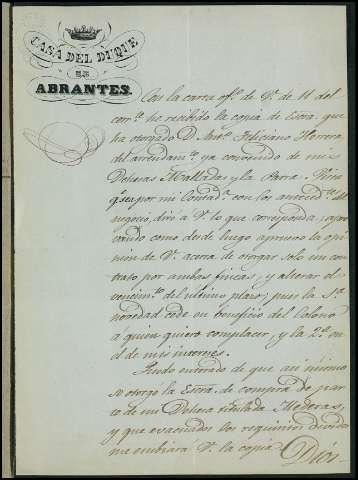 CASA DEL DUQUE
DE
ABRANTES.
Con la carta of.¹ de V. de 11 del
corr.ᵉ he recibido la copia de Escra. que
ha otorgado D. Ant.º Feliciano Herrera
del arrendam.ᵗᵒ ya convenido de mis
Dehesas Malladas y la Parra. Vista
q.ᵉ sea por mi Contad.ª con los anteced.ˢ del
negocio, diré a V. lo que corresponda; apro
vando como desde luego apruevo la opi
nion de V. acerca de otorgar solo un con
trato por ambas fincas, y alterar el
vencim.ᵗᵒ del ultimo plazo; pues la 1.ª
novedad cede en beneficio del Colono
á quien quiero complacer, y la 2.ª en
el de mis intereses.
Quedo enterado de que asi mismo
se otorgó la Escra. de compra de par
te de mi Dehesa titulada Mederas,
y que evacuados los requisitos devidos
me embiará V. la copia
Dios